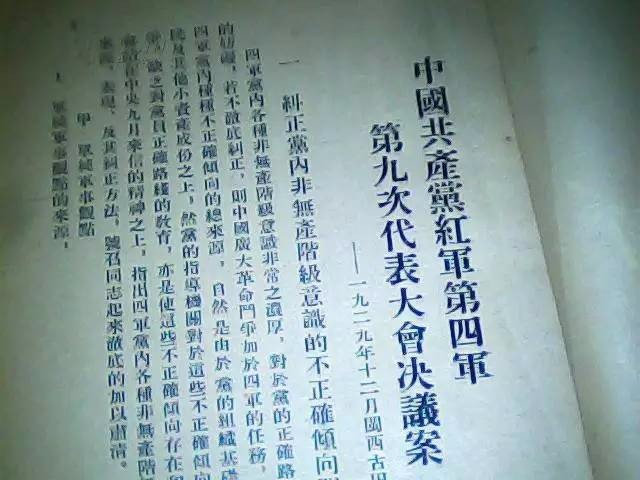 中國共產黨紅軍第四軍
第九次代表大會决議案
——一九二九年十二月閩西古田
一 糾正黨內非無產階級意識的不正確傾向
四軍黨內各種非無產階級意識非常之濃厚，對於黨的正確路
的妨礙，若不徹底糾正，則中國廣大革命鬥爭加於四軍的任務，
四軍黨內種種不正確傾向的總來源，自然是由於黨的組織基礎
民及其他小資產成份之上，然黨的指導機關對於這些不正確傾向
缺乏對黨員正確路綫的教育，亦是使這些不正確傾向存在和
在中央九月來信的精神之上，指出四軍黨內各種非無產階
來源、表現、及其糾正方法，號召同志起來徹底的加以肅清。
甲 單純軍事觀點
1 單純軍事觀點的來源：